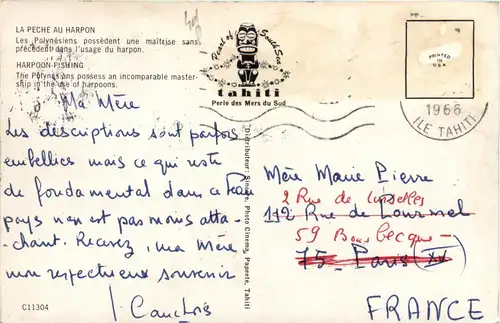 LA PECHE AU HARPON
Les Polynésiens possèdent une maîtrise sans
précédent dans l'usage du harpon.
HARPOON-FISHING
The Polynesians possess an incomparable master-
ship in the use of harpoons.
Pearl of South Sea
tahiti
Perle des Mers du Sud
PRINTED
IN
U.S.A.
1966
ILE TAHITI
Ma Mère
Les descriptions sont parfois
embellies mais ce qui reste
de fondamental dans ce beau
pays n'en est pas moins atta-
chant. Recevez, ma Mère
mon respectueux souvenir
C11304
Distributeur: Photo Cinema, Papeete, Tahiti
Mère Marie Pierre
2 Rue de
112 Rue de Lourmel
59 Bousbecque
75 - Paris (XV)
FRANCE